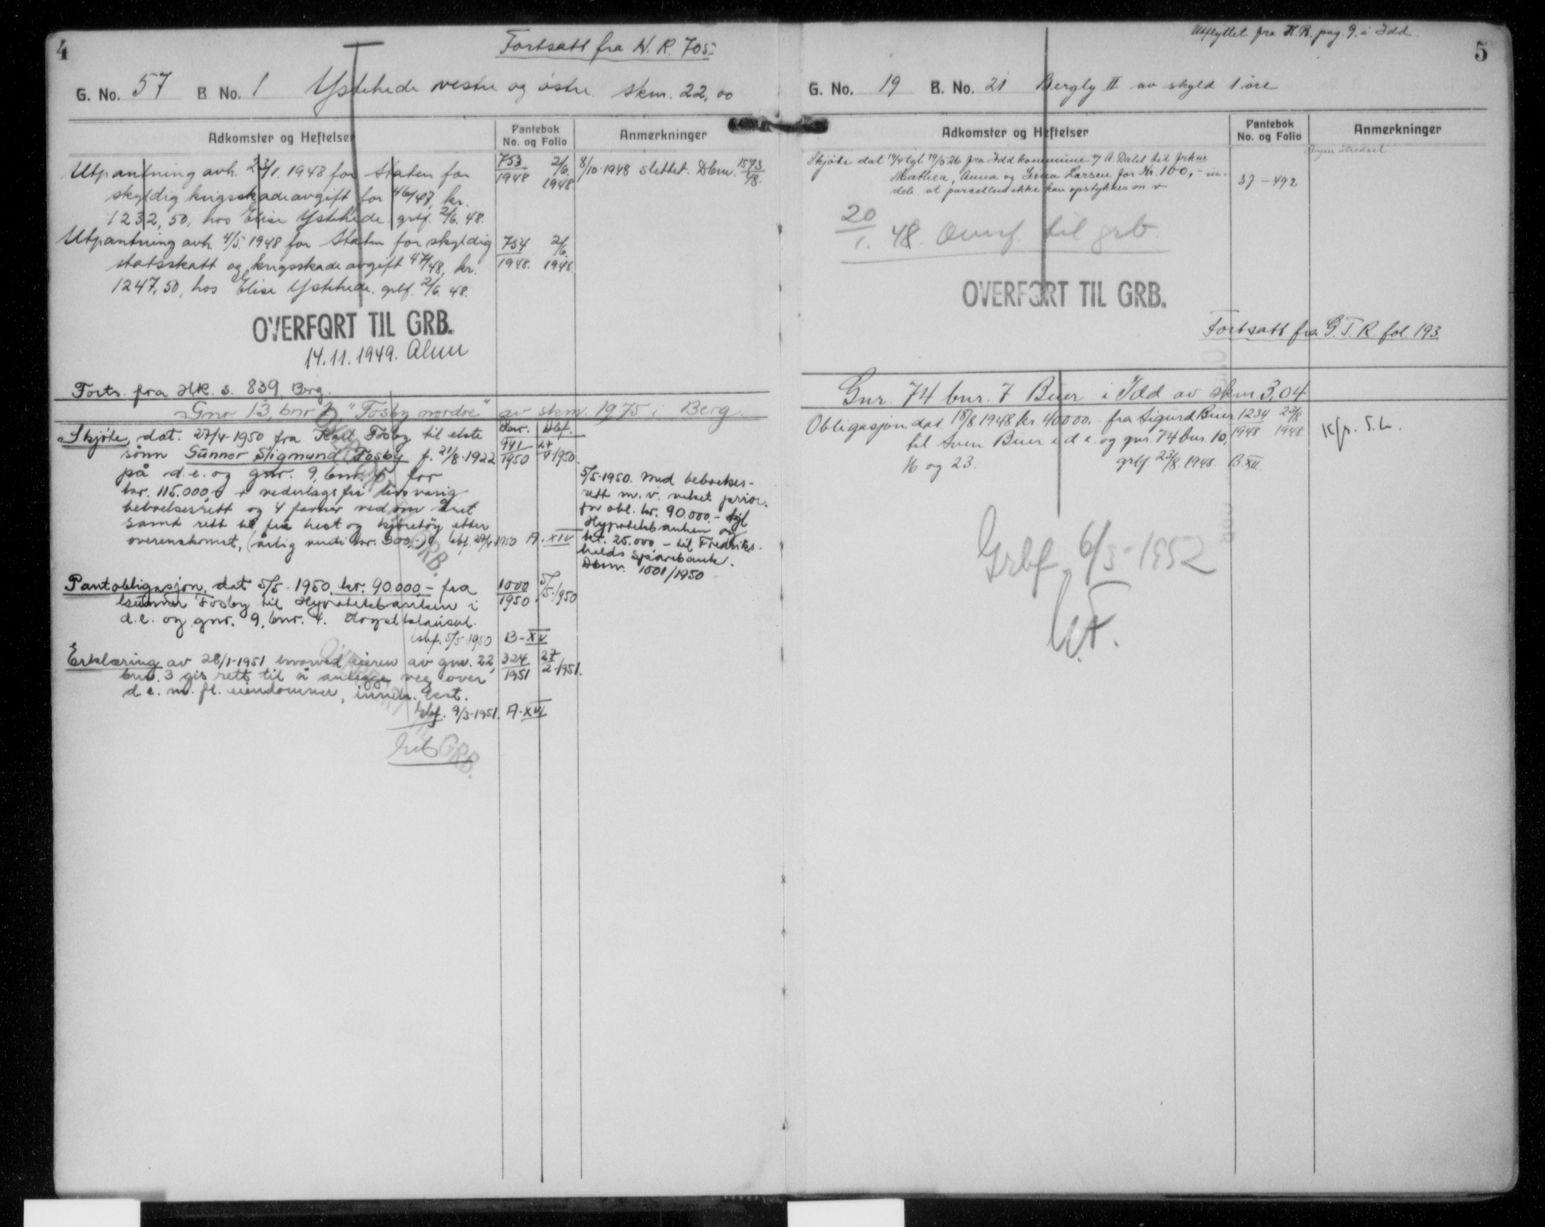 4
Fortsatt fra H. R. 705.
G. No. 57 B. No. 1 Ystehede vestre og østre skm. 22,00
Adkomster og Heftelser
Pantebok No. og Folio
Anmerkninger
Utpantning avh. 1948 for Staten for 753/1948 2/6 1948 8/10 1948 slettet. Dbnr. 1573/48.
skyldig krigsskadeavgift for 46/47, kr.
1232,50, hos Elise Ystehede grbf. 2/6. 48.
Utpantning avh. 4/5 1948 for Staten for skyldig 754/1948. 2/6. 1948.
statsskatt og krigsskadeavgift 47/48, kr.
1247,50, hos Elise Ystehede. grbf. 2/6. 48.
OVERFØRT TIL GRB.
14.11.1949.
Forts. fra HR. s. 839 Berg.
Gnr 13, bnr "Fosby nordre" av skm. 1975 i Berg.
Skjøte, dat. 27/4 1950 fra Fosby til elste Dnr. Dbf.
sønn Gunnar Sigmund Fosby f. 21/8-1922 941/1950 1950.
på d.e. og gnr. 9, bnr. 4, for
kr. 115.000,- + vederlagsfri livsvarig
beboelsesrett og 4 favner ved om året
samt rett til fri hest og kjøretøy etter
overenskomst, (årlig verdi kr. 500,-) 1950 A-XIV
5/5-1950. Med beboelses-
rett m.v. veket prior.
for obl. kr. 90.000,- til
Hypotekbanken og
kr. 25.000,- til Fredriks-
halds Sparebank.
Dbnr. 1001/1950
Pantobligasjon, dat 5/5-1950, kr. 90.000,- fra 1000/1950 5/5-1950
Gunnar Fosby til Hypotekbanken i
d.e. og gnr. 9, bnr. 4.
5/5-1950 B-XV
Erklæring av 28/1-1951 hvorved eieren av gnr. 22, 324/1951 27/2-1951.
bnr. 3 gis rett til å anlegge veg over
d.e. m. fl. eiendommer,
9/3-1951. A-XVI
GRB.
5
Utflyttet fra H.R. pag 9. i Idd.
G. No. 19 B. No. 21 Bergly II av skyld 1 øre
Adkomster og Heftelser
Pantebok No. og Folio
Anmerkninger
Skjøte dat fra Idd kommune v/ A. Dalet til frkne
Mathea, Anna og Larsen for Kr. 100,-
dels. at parcellen ikke kan opstykkes 37-492
20/1. 48. Overf. til grb.
OVERFØRT TIL GRB.
Fortsatt fra G.T.R. fol. 193
Gnr. 74 bnr. 7 Buer i Idd av skm 3,04
Obligasjon dat 18/8 1948 kr. 40000.- fra Sigurd Buer 1234/1948 1948
til Sven Buer i d.e. og gnr. 74 bnr. 10,
16 og 23. grbf 23/8 1948. B XII
Grbf. 6/5-1952